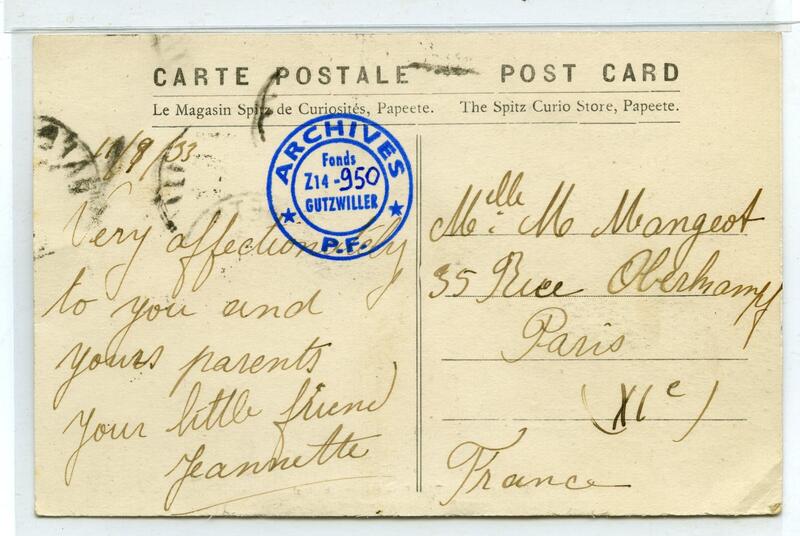 CARTE POSTALE POST CARD
Le Magasin Spitz de Curiosités, Papeete. The Spitz Curio Store, Papeete.
11/9/33
ARCHIVES
Fonds
Z14-950
GUTZWILLER
P.F.
Very affectionately
to you and
yours parents
your little friend
Jeannette
Melle M Mangeot
35 Rue Oberkampf
Paris
(XIe)
France